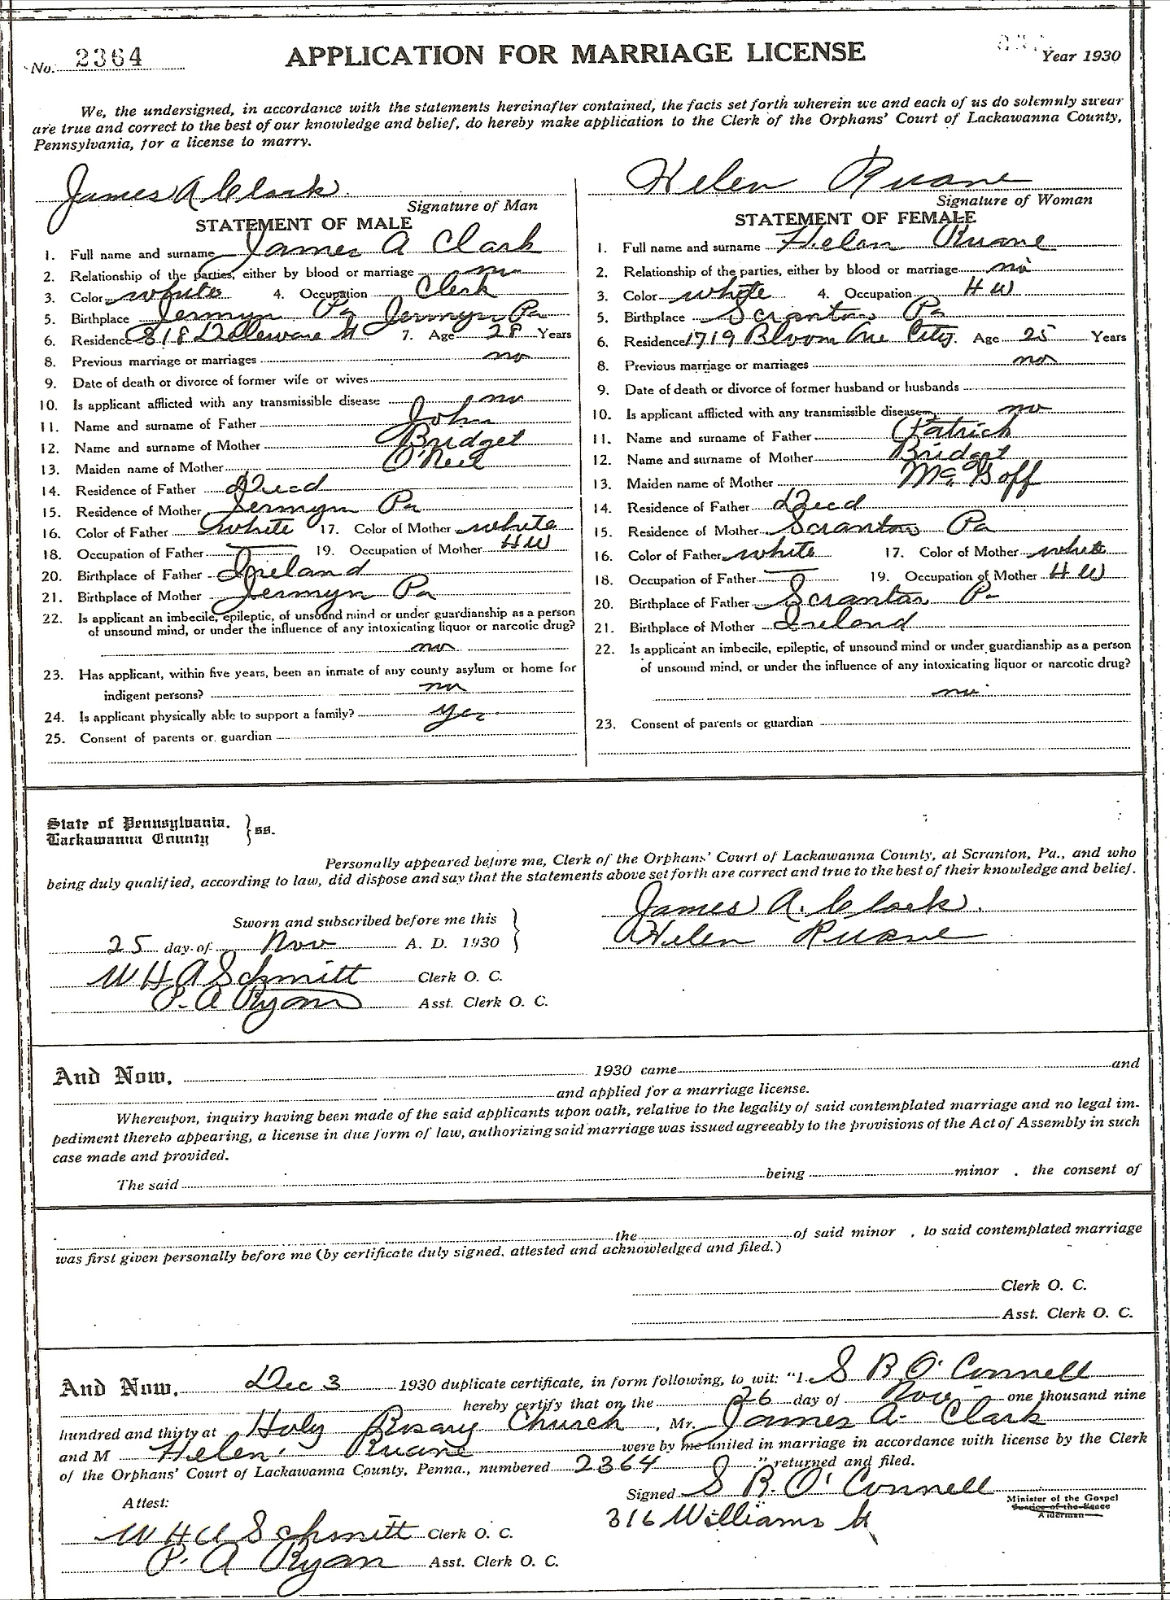 No. 2364
APPLICATION FOR MARRIAGE LICENSE
Year 1930
We, the undersigned, in accordance with the statements hereinafter contained, the facts set forth wherein we and each of us do solemnly swear
are true and correct to the best of our knowledge and belief, do hereby make application to the Clerk of the Orphans' Court of Lackawanna County,
Pennsylvania, for a license to marry.
James A Clark
Signature of Man
STATEMENT OF MALE
1. Full name and surname James A Clark
2. Relationship of the parties, either by blood or marriage no
3. Color white 4. Occupation Clerk
5. Birthplace Jermyn Pa Jermyn Pa
6. Residence 818 Deleware St 7. Age 28 Years
8. Previous marriage or marriages no
9. Date of death or divorce of former wife or wives
10. Is applicant afflicted with any transmissible disease no
11. Name and surname of Father John
12. Name and surname of Mother Bridget
13. Maiden name of Mother O'Neil
14. Residence of Father Decd
15. Residence of Mother Jermyn Pa
16. Color of Father white 17. Color of Mother white
18. Occupation of Father — 19. Occupation of Mother HW
20. Birthplace of Father Ireland
21. Birthplace of Mother Jermyn Pa
22. Is applicant an imbecile, epileptic, of unsound mind or under guardianship as a person
of unsound mind, or under the influence of any intoxicating liquor or narcotic drug?
no
23. Has applicant, within five years, been an inmate of any county asylum or home for
indigent persons? no
24. Is applicant physically able to support a family? yes
25. Consent of parents or guardian
Helen Ruane
Signature of Woman
STATEMENT OF FEMALE
1. Full name and surname Helen Ruane
2. Relationship of the parties, either by blood or marriage no
3. Color white 4. Occupation HW
5. Birthplace Scranton Pa
6. Residence 1719 Bloom Ave City. Age 25 Years
8. Previous marriage or marriages no
9. Date of death or divorce of former husband or husbands
10. Is applicant afflicted with any transmissible disease no
11. Name and surname of Father Patrick
12. Name and surname of Mother Bridget
13. Maiden name of Mother McGoff
14. Residence of Father Decd
15. Residence of Mother Scranton Pa
16. Color of Father white 17. Color of Mother white
18. Occupation of Father — 19. Occupation of Mother HW
20. Birthplace of Father Scranton Pa
21. Birthplace of Mother Ireland
22. Is applicant an imbecile, epileptic, of unsound mind or under guardianship as a person
of unsound mind, or under the influence of any intoxicating liquor or narcotic drug?
no
23. Consent of parents or guardian
State of Pennsylvania, } ss.
Lackawanna County
Personally appeared before me, Clerk of the Orphans' Court of Lackawanna County, at Scranton, Pa., and who
being duly qualified, according to law, did dispose and say that the statements above set forth are correct and true to the best of their knowledge and belief.
Sworn and subscribed before me this
25 day of Nov A. D. 1930
James A. Clark.
Helen Ruane
W H A Schmitt Clerk O. C.
P. A Ryan Asst. Clerk O. C.
And Now, 1930 came and
and applied for a marriage license.
Whereupon, inquiry having been made of the said applicants upon oath, relative to the legality of said contemplated marriage and no legal im-
pediment thereto appearing, a license in due form of law, authorizing said marriage was issued agreeably to the provisions of the Act of Assembly in such
case made and provided.
The said being minor , the consent of
the of said minor , to said contemplated marriage
was first given personally before me (by certificate duly signed, attested and acknowledged and filed.)
Clerk O. C.
Asst. Clerk O. C.
And Now, Dec 3 1930 duplicate certificate, in form following, to wit: "I S B O'Connell
hereby certify that on the 26 day of Nov. one thousand nine
hundred and thirty at Holy Rosary Church, Mr. James A. Clark
and M Helen Ruane were by me united in marriage in accordance with license by the Clerk
of the Orphans' Court of Lackawanna County, Penna., numbered 2364 " returned and filed.
Signed S B. O'Connell
Minister of the Gospel
Justice of the Peace
Alderman
316 Williams St
Attest:
W H A Schmitt Clerk O. C.
P. A Ryan Asst. Clerk O. C.